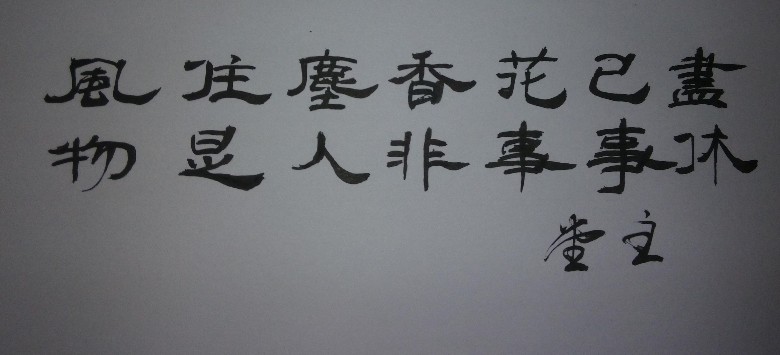 風住塵香花已盡
物是人非事事休
堂主